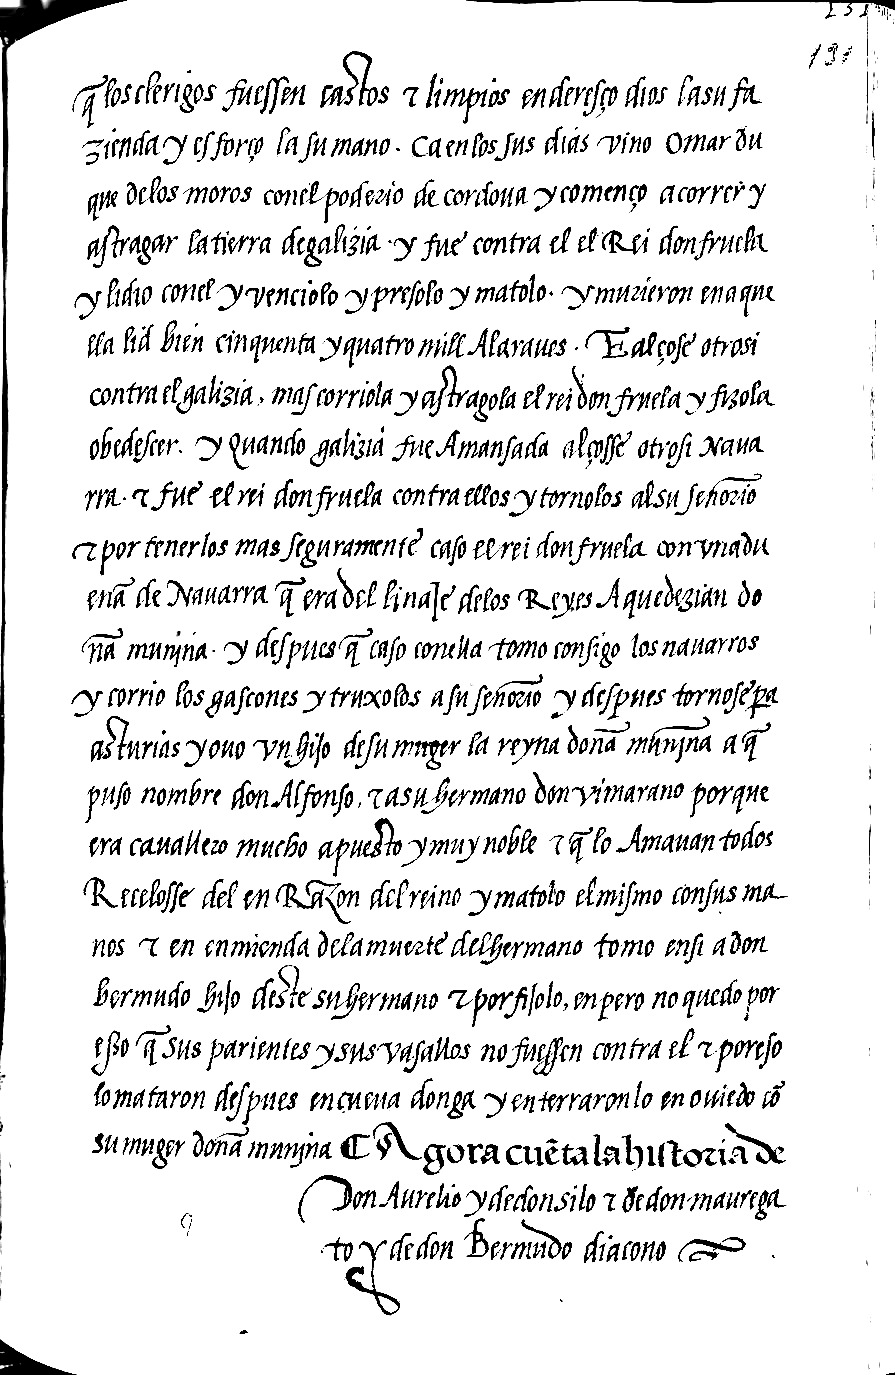 131
q̃ los clerigos fuessen castos τ limpios enderesço dios lasu fa
zienda y esforço la su mano. Ca en los sus dias vino Omar du
que delos moros conel poderio de cordoua y començo acorrer y
astragar la tierra de galizia. y fue contra el el Rei don fruela
y lidio conel y venciolo y presolo y matolo. y murieron ena que
lla lid bien cinquenta y quatro mill Alaraues. E alçose otrosi
contra el galizia, mas corriola y astragola el rei don fruela y fizola
obedescer. y Quando galizia fue Amansada alçosse otrosi Naua
rra. τ fue el rei don fruela contra ellos y tornolos al su señorio
τ por tenerlos mas seguramente caso el rei don fruela con vna du
enã de Nauarra q̃ era del linaje delos Reyes A que dezian do
ña munina. y despues q̃ caso conella tomo consigo los nauarros
y corrio los gascones y truxolos a su señorio y despues tornose pa
asturias y ouo vn hijo de su muger la reyna doña munina a q̃
puso nombre don Alfonso, τ a su hermano don vimarano porque
era cauallero mucho apuesto y muy noble τ q̃ lo Amauan todos
Recelosse del en Razon del reino y matolo el mismo con sus ma
nos τ en enmienda dela muerte del hermano tomo ensi a don
bermudo hijo deste su hermano τ porfijolo, en pero no quedo por
esso q̃ sus parientes y sus vasallos no fuessen contra el τ por eso
lo mataron despues en cueua donga y enterraronlo en ouiedo cõ
su muger doña munina Agora cuẽta la historia de
Don Aurelio y de don silo τ de don maurega
to y de don Bermudo diacono